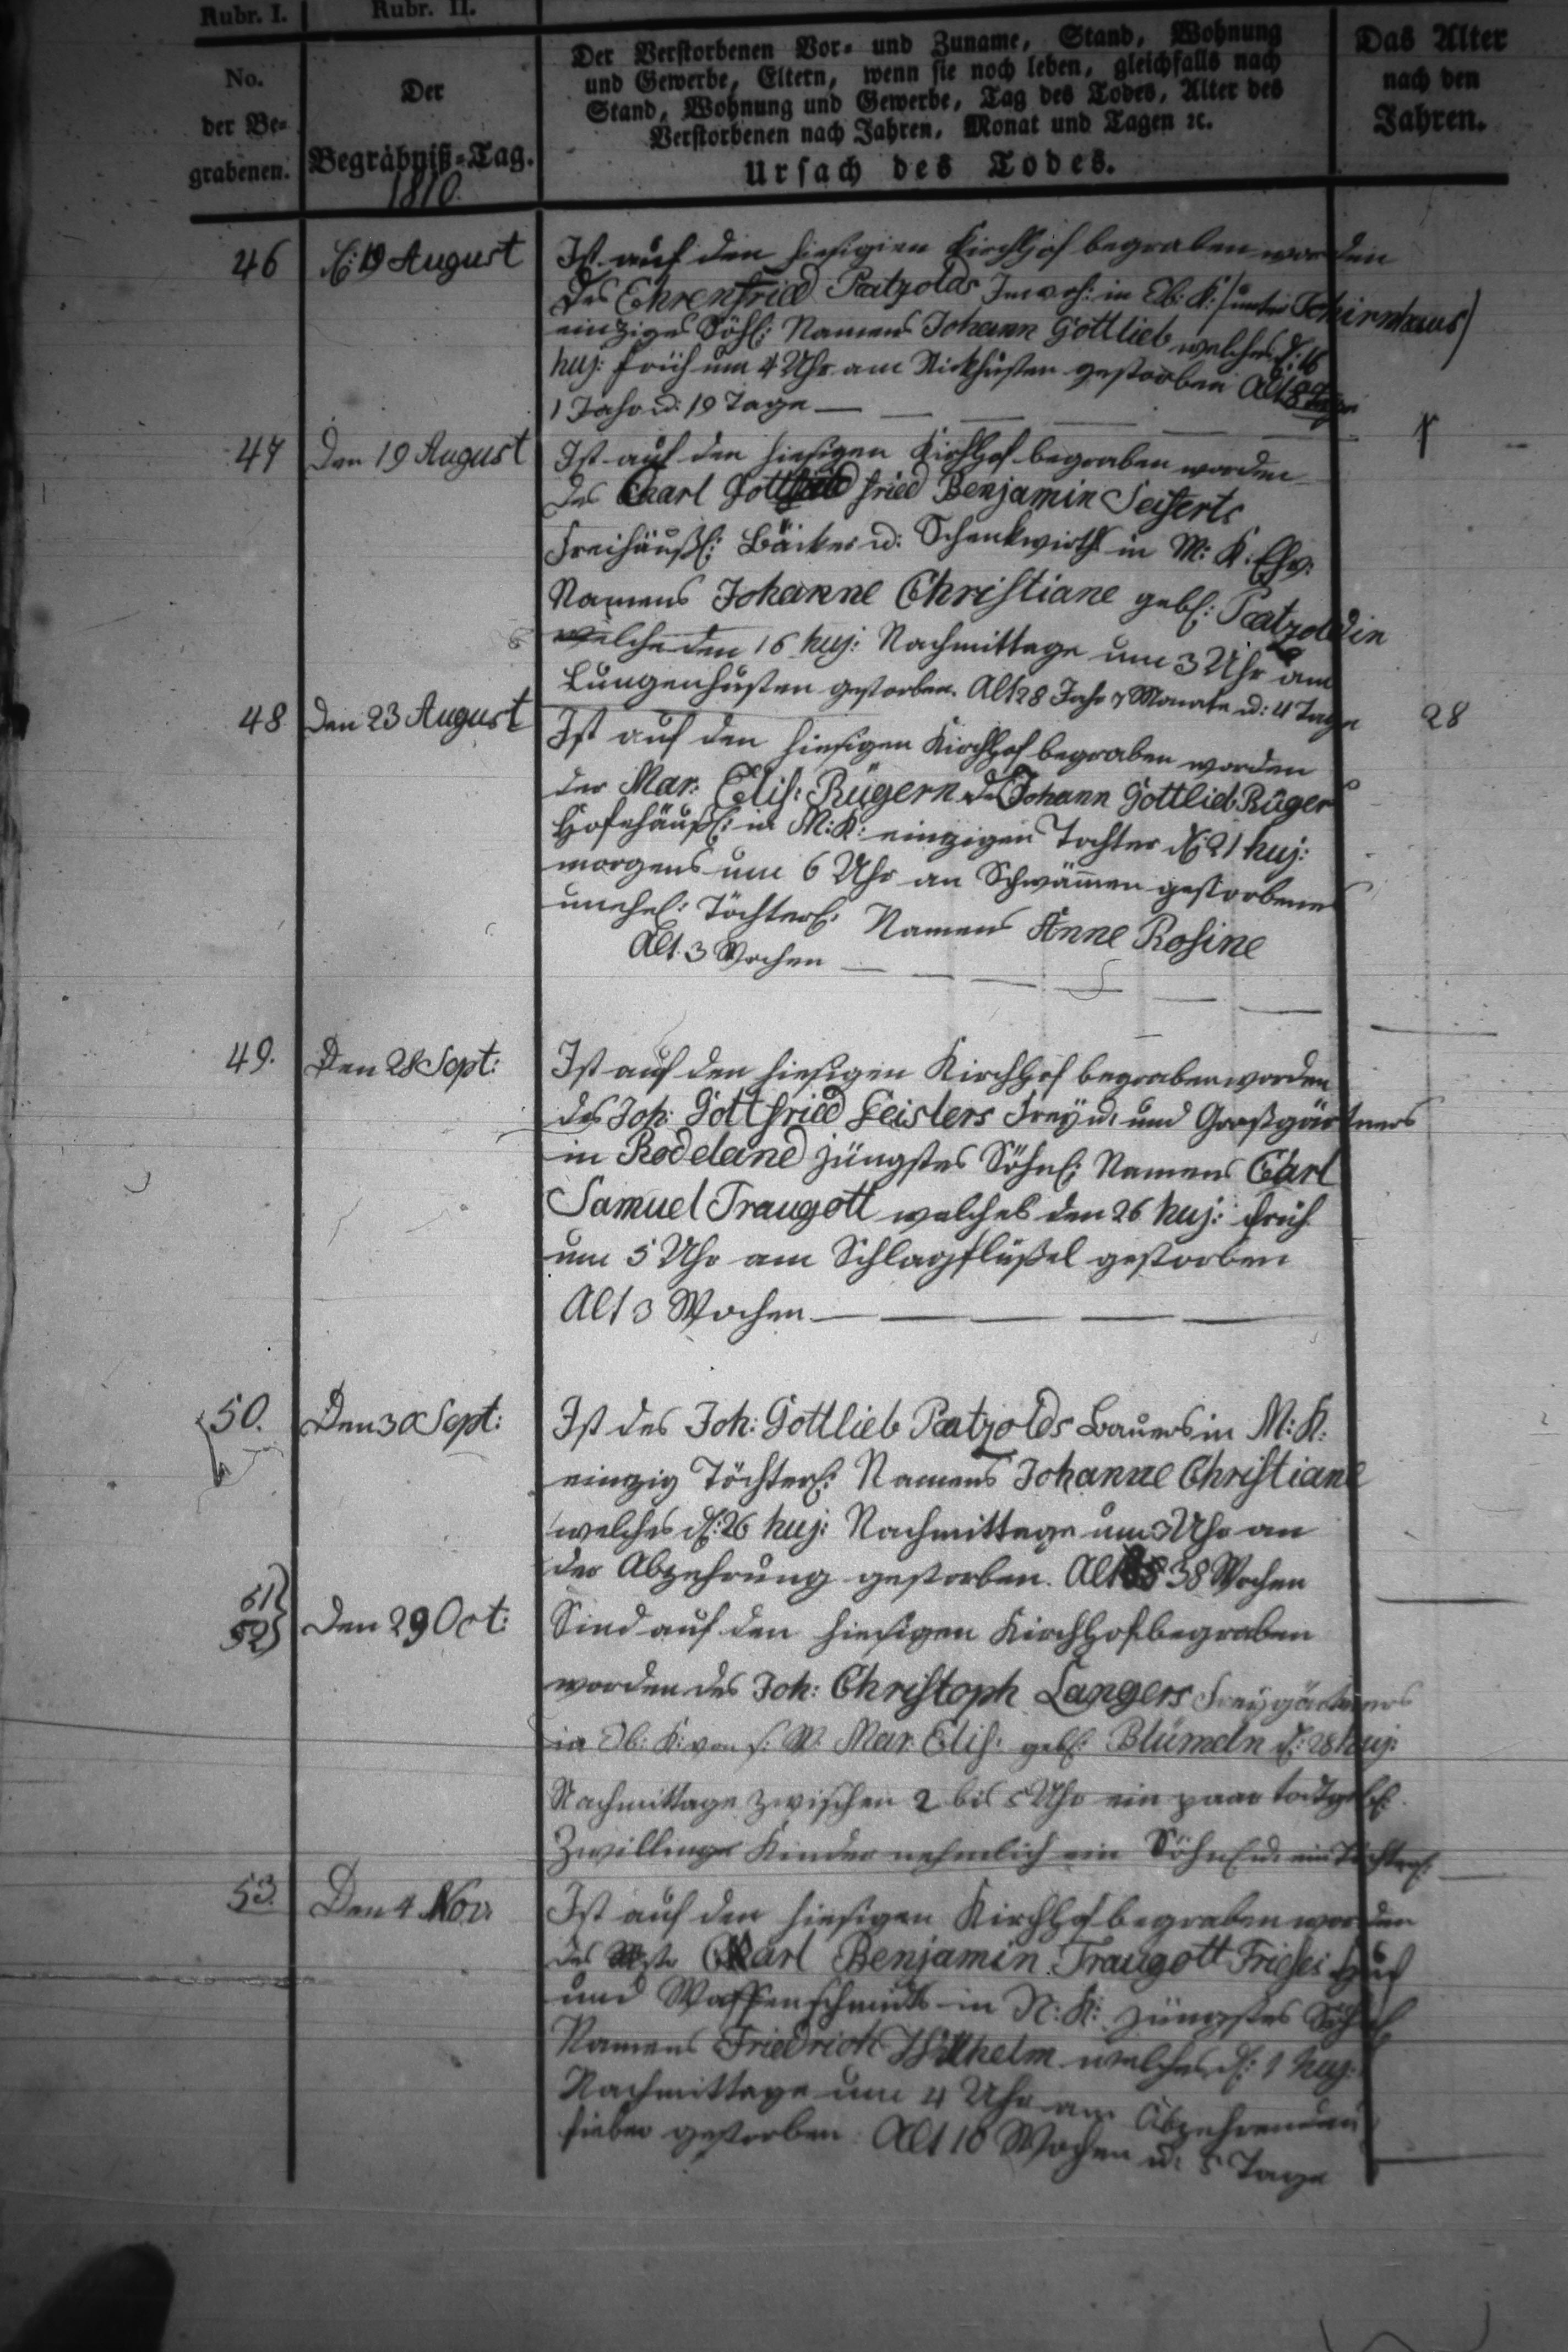 Rubr. I.
Rubr. II.
No.
der Be-
grabenen.
Der
Begräbniß-Tag.
1810.
Der Verstorbenen Vor- und Zuname, Stand, Wohnung
und Gewerbe, Eltern, wenn sie noch leben, gleichfalls nach
Stand, Wohnung und Gewerbe, Tag des Todes, Alter des
Verstorbenen nach Jahren, Monat und Tagen ꝛc.
Ursach des Todes.
Das Alter
nach den
Jahren.
46
d: 19 August
Ist auf den hiesigen Kirchhof begraben worden
des Ehrenfried Paetzolds Inwoh: in Ob: K: /unter Schirmhaus/
einziges Söhl: Namens Johann Gottlieb welches d: 16
huj: früh um 4 Uhr am Stickhusten gestorben Alt
1 Jahr u: 19 Tage
1
47
Den 19 August
Ist auf den hiesigen Kirchhof begraben worden
des Carl Gottfried Benjamin Seiferts
Freihäusl: Bäcker u: Schenkwirths in M: K. Ehw:
Namens Johanne Christiane geb: Paetzoldin
welche den 16 huj: Nachmittage um 3 Uhr am
Lungenhusten gestorben. Alt 28 Jahr 7 Monate u: 4 Tage
28
48
Den 23 August
Ist auf den hiesigen Kirchhof begraben worden
der Mar: Elis: Rügern des Johann Gottlieb Rüger
Hofehäusl: in M: K: einzigen Tochter d: 21 huj:
morgens um 6 Uhr an Schwämmen gestorbenes
unehel: Töchterl: Namens Anne Rosine
Alt 3 Wochen
49.
Den 28 Sept:
Ist auf den hiesigen Kirchhof begraben worden
des Joh: Gottfried Geislers Frey u: und Großgärtners
in Rodeland jüngstes Söhnl: Namens Carl
Samuel Traugott welches den 26 huj: früh
um 5 Uhr am Schlagflüßel gestorben
Alt 3 Wochen
50.
Den 30 Sept:
Ist des Joh: Gottlieb Paetzolds Bauers in M: K:
einzig Töchterl: Namens Johanne Christiane
welches d: 26 huj: Nachmittage um 3 Uhr an
der Abzehrung gestorben. Alt 38 Wochen
51
52
Den 29 Oct:
Sind auf den hiesigen Kirchhof begraben
worden des Joh: Christoph Langers Freygärtners
in Ob: K: von s: W: Mar: Elis: geb: Blümeln d: 28 huj:
Nachmittage zwischen 2 bis 5 Uhr ein paar todtgeb:
Zwillinge Kinder nehmlich ein Söhnl u: ein Töchterl:
53.
Den 4 Nov:
Ist auf den hiesigen Kirchhof begraben worden
des Mstr Carl Benjamin Traugott Frieses Huf
und Waffenschmidts in N: K: jüngstes Söhnl
Namens Friedrich Wilhelm welches d: 1 huj:
Nachmittage um 4 Uhr am Abzehrenden
fieber gestorben: Alt 10 Wochen u: 5 Tage